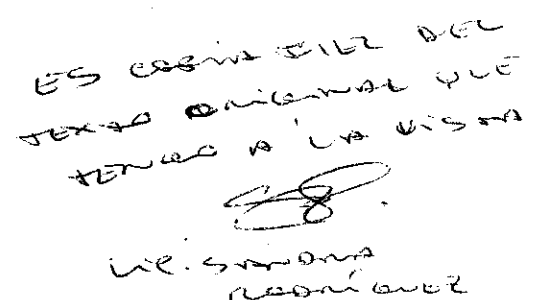 ES COPIA FIEL DEL
TEXTO ORIGINAL QUE
TENGO A LA VISTA
LIC. SANDRA
RODRÍGUEZ